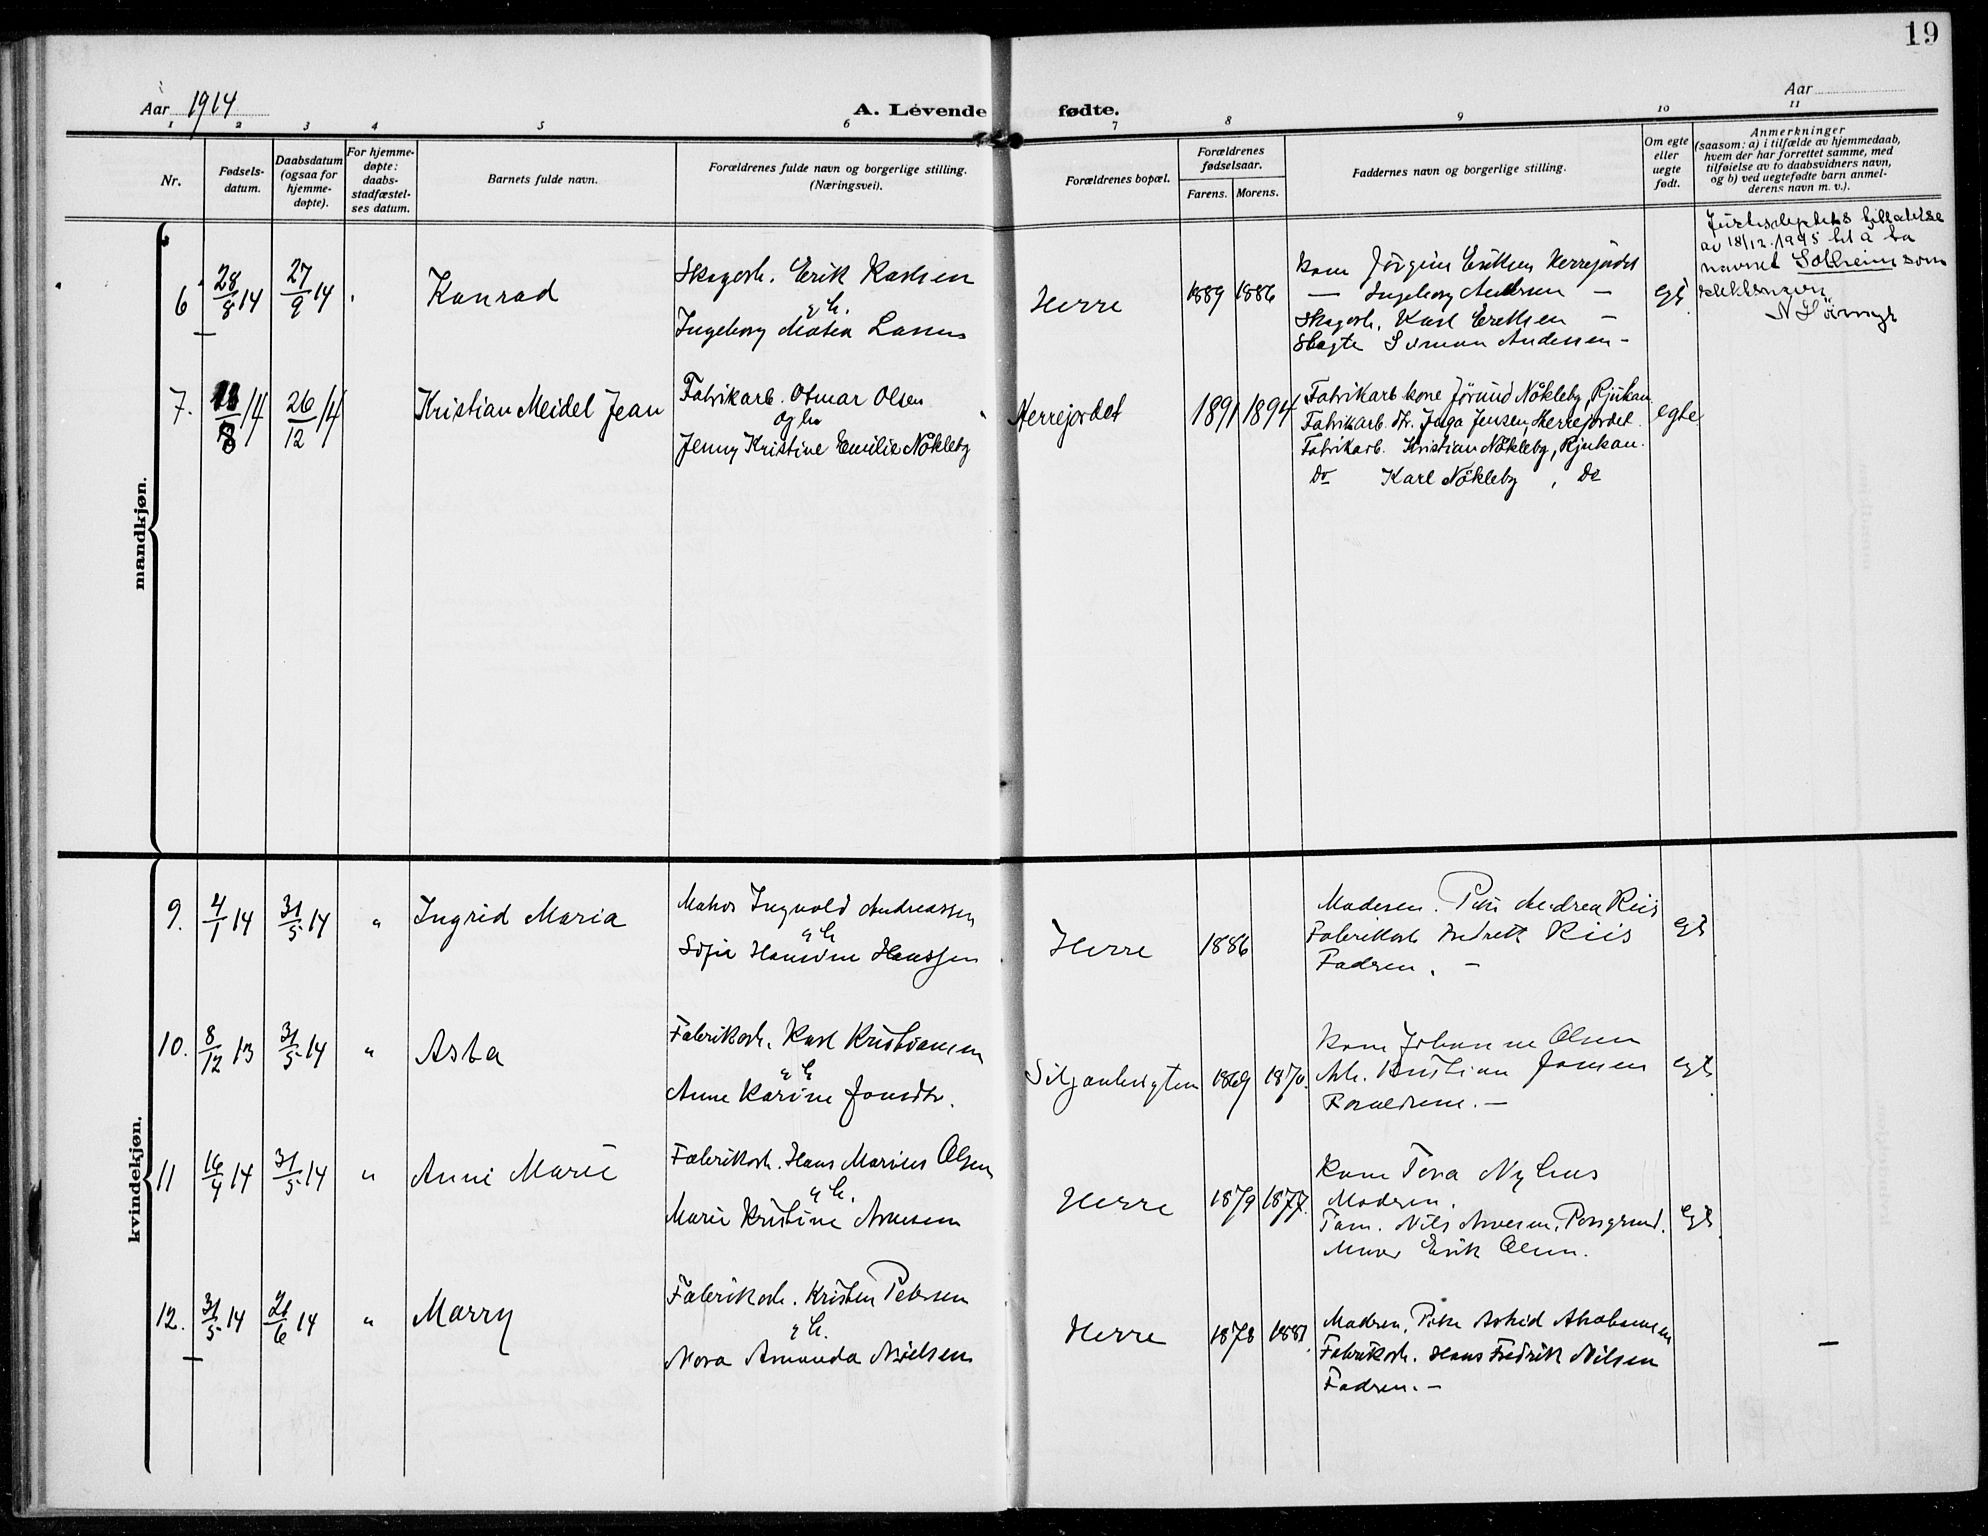 19
Aar 1914
A. Levende fødte.
Aar
1 2 3 4 5 6 7 8 9 10 11
Nr.
Fødsels-
datum.
Daabsdatum
(ogsaa for
hjemme-
døpte).
For hjemme-
døpte:
daabs-
stadfæstel-
ses datum.
Barnets fulde navn.
Forældrenes fulde navn og borgerlige stilling.
(Næringsvei).
Forældrenes bopæl.
Forældrenes
fødselsaar.
Farens. Morens.
Faddernes navn og borgerlige stilling.
Om egte
eller
uegte
født.
Anmerkninger
(saasom: a) i tilfælde av hjemmedaab,
hvem der har forrettet samme, med
tilføielse av to daabsvidners navn,
og b) ved uegtefødte barn anmel-
derens navn m. v.).
mandkjøn.
6 28/8 14 27/9 14
Konrad
Skogarb. Erik Karlsen
og h.
Ingeborg Larsen
Herre
1889 1886
Kone Eriksen Herrejordet
— Ingeborg Andersen —
Skogarb. Karl Eriksen —
Andersen —
egt.
av 18/12. 1945 til å ta
navnet Solheim som
slektsnavn.
7. /8 14 26/12 14
Kristian Meidel Jean
Fabrikarb. Otmar Olsen
og hu
Jenny Kristine Emilie Nökleby
Herrejordet
1891 1894
Fabrikarb kone Jörund Nökleby, Rjukan
Fabrikarb. Inga Jensen, Herrejordet.
Fabrikarb. Kristian Nökleby, Rjukan.
Do Karl Nökleby, Do
egte
kvindekjøn.
9. 4/1 14 31/5 14 "
Ingrid Maria
Ingvald Andreassen
og h.
Sofie Hanssen
Herre
1886
Moderen. Pike Andrea Riis
Fabrikarb. Riis
Fadren. —
egt
10. 8/12 13 31/5 14 "
Asta
Fabrikarb. Karl Kristiansen
og h.
Anne Karine Jonsdtr.
1869 1870.
Kone Johanne Olsen
Arb. Kristian Jonsen
Foreldrene. —
egt
11 16/4 14 31/5 14 "
Anne Marie
Fabrikarb. Hans Marius Olsen
og h.
Marie Kristine
Herre
1879 1877.
Kone Tora Nyhus
Modren.
Nils Porsgrund.
Murer Erik Olsen.
egt.
12. 31/5 14 21/6 14 "
Marry
Fabrikarb. Kristen Petersen
og h.
Nora Amanda Nielsen
Herre
1878 1881.
Modren, Pike Astrid
Fabrikarb. Hans Fredrik Nilsen
Fadren. —
—